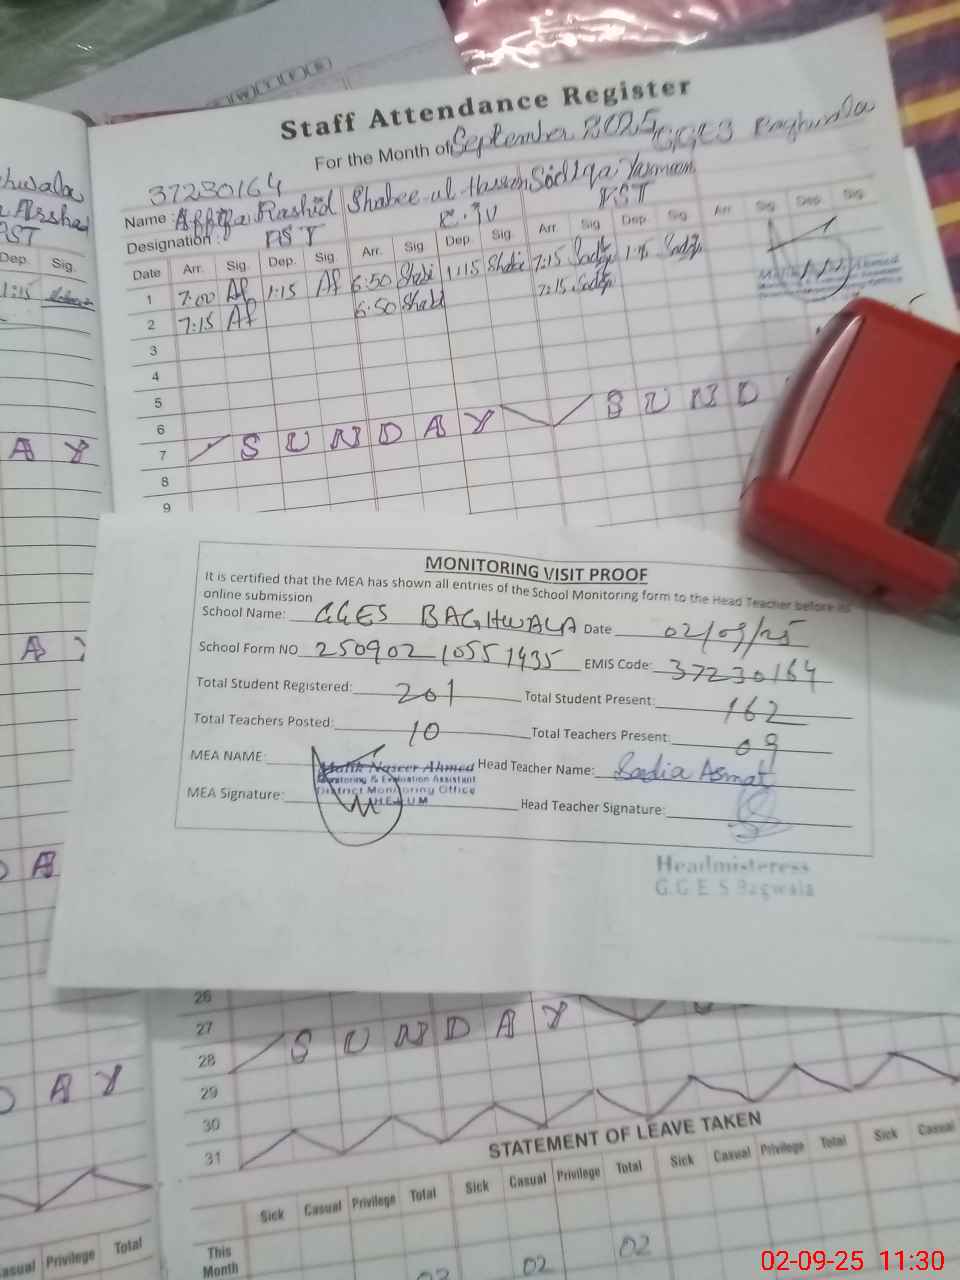 Staff Attendance Register
For the Month of September 2025 GGES Baghwala
37230164
Name : Rashid Shabee-ul-Hassan Sadiqa Yasmeen
Designation : PST PST
Date Arr. Sig. Dep. Sig. Arr. Sig Dep. Sig. Arr. Sig Dep. Sig Arr. Sig Dep. Sig
1 7:00 Af 1:15 Af 6:50 Shabi 1:15 Shabi 7:15 Sadiqa 1:15 Sadiqa
2 7:15 Af 6:50 Shabi 7:15 Sadiqa
3
4
5
6
7 SUNDAY SUND
8
9
Dep. Sig.
1:15
A Y
A
A
A Y
MONITORING VISIT PROOF
It is certified that the MEA has shown all entries of the School Monitoring form to the Head Teacher before its
online submission
School Name: GGES BAGHWALA Date 02/09/25
School Form NO 250902 10551435 EMIS Code: 37230164
Total Student Registered: 201 Total Student Present: 162
Total Teachers Posted: 10 Total Teachers Present: 09
MEA NAME: Malik Naseer Ahmed Head Teacher Name: Sadia Asmat
Monitoring & Evaluation Assistant
District Monitoring Office
JHELUM
MEA Signature: Head Teacher Signature:
Headmisteress
G.G.E.S Bagwala
26
27
28 SUNDAY
29
30
31
STATEMENT OF LEAVE TAKEN
Sick Casual Privilege Total Sick Casual Privilege Total Sick Casual Privilege Total Sick Casual
This
Month 02 02 02
Casual Privilege Total
02-09-25 11:30